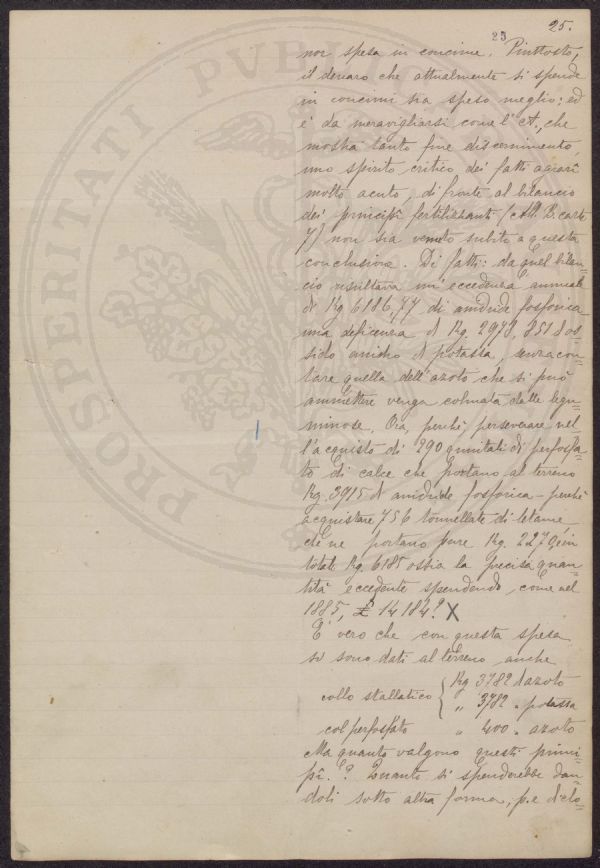 25.
25
nor spesa in concime. Piuttosto,
il denaro che attualmente si spende
in concimi sia speso meglio; ed
è da meravigliarsi come l'A., che
mostra tanto fine discernimento
uno spirito critico dei fatti agrari
molto acuto, di fronte al bilancio
dei principî fertilizzanti (All. B. carte
7) non sia venuto subito a questa
conclusione. Di fatti: da quel bilan=
cio risultava un'eccedenza annuale
di Kg 6186,77 di anidride fosforica
una deficenza di Kg. 2978,851 d'os=
sido anidro di potassa, senza con=
tare quella dell'azoto che si può
ammettere venga colmata dalle legu=
minose. Ora, perchè perseverare nel=
l'acquisto di 290 quintali di perfosfa=
to di calce che portano al terreno
Kg. 3915 di anidride fosforica - perchè
acquistare 756 tonnellate di letame
che ne portano pure Kg. 2270, in
totale Kg. 6185 ossia la precisa quan=
tità eccedente spendendo, come nel
1885, £ 14184? X
È vero che con questa spesa
si sono dati al terreno anche
collo stallatico { Kg 3782 d'azoto
" 3782 " potassa
col perfosfato " 400 " azoto
Ma quanto valgono questi princi=
pî? Quanto si spenderebbe dan=
doli sotto altra forma, p. e. di clo=
PROSPERITATI PUBLI